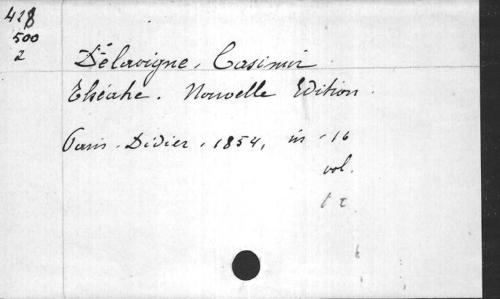 428
500
2
Délavigne, Casimir
Théatre. Nouvelle Edition.
Paris. Didier, 1854, in-16
vol.